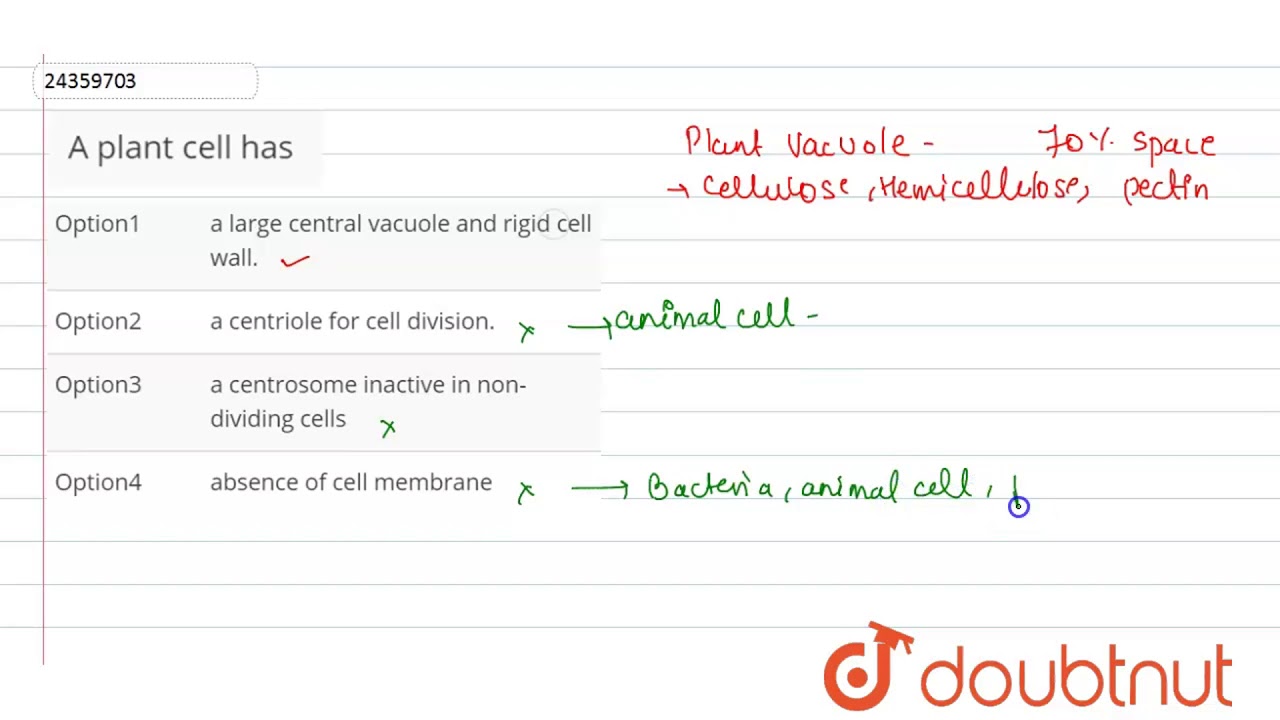 24359703
A plant cell has
Plant Vacuole - 70% space
→ Cellulose, Hemicellulose, pectin
Option1 a large central vacuole and rigid cell
wall. ✓
Option2 a centriole for cell division. x → animal cell -
Option3 a centrosome inactive in non-
dividing cells x
Option4 absence of cell membrane x → Bacteria, animal cell,
doubtnut